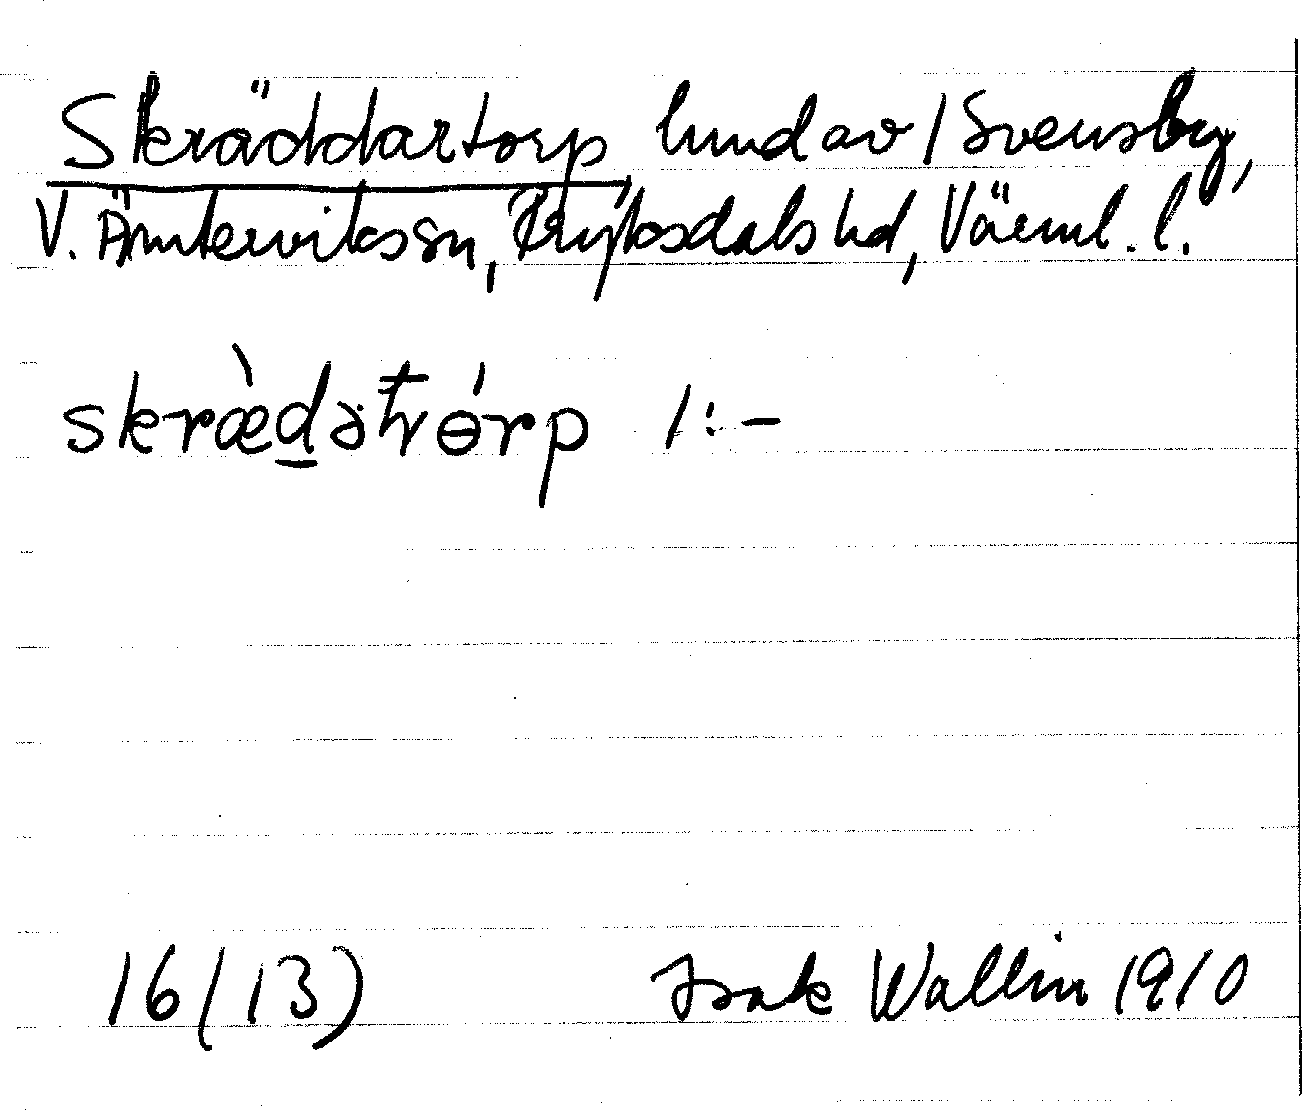 Skräddartorp hmd av 1 Svensby,
V. Ämterviks sn, Fryksdals hd, Värml. l.
skræ̀dətɵ́rp /:-
16(13) Isak Wallin 1910